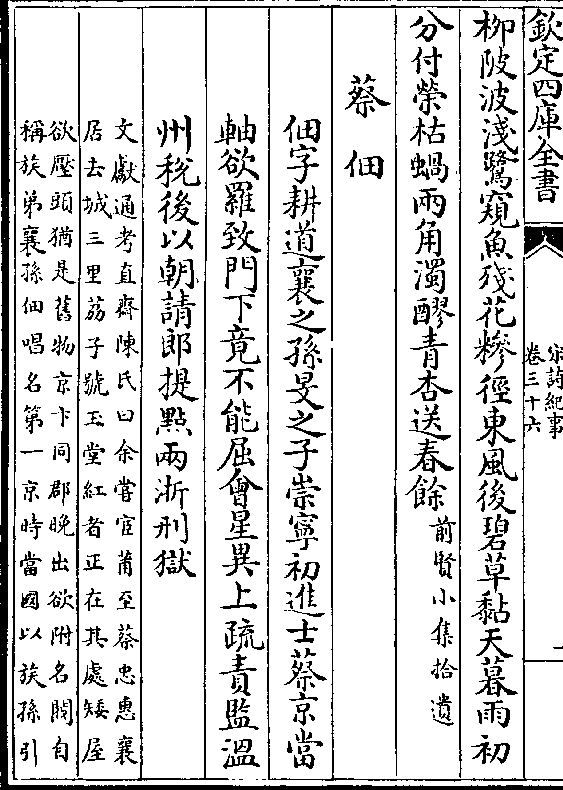 欽定四庫全書
宋詩紀事
卷三十六
柳陂波淺鷺窺魚殘花糝徑東風後碧草黏天暮雨初
分付榮枯蝸兩角濁醪青杏送春餘前賢小集拾遺
蔡佃
佃字耕道襄之孫旻之子崇寧初進士蔡京當
軸欲羅致門下竟不能屈會星異上疏責監溫
州稅後以朝請郎提點兩浙刑獄
文獻通考直齋陳氏曰余嘗官莆至蔡忠惠襄
居去城三里荔子號玉堂紅者正在其處矮屋
欲壓頭猶是舊物京卞同郡晚出欲附名閥自
稱族弟襄孫佃唱名第一京時當國以族孫引